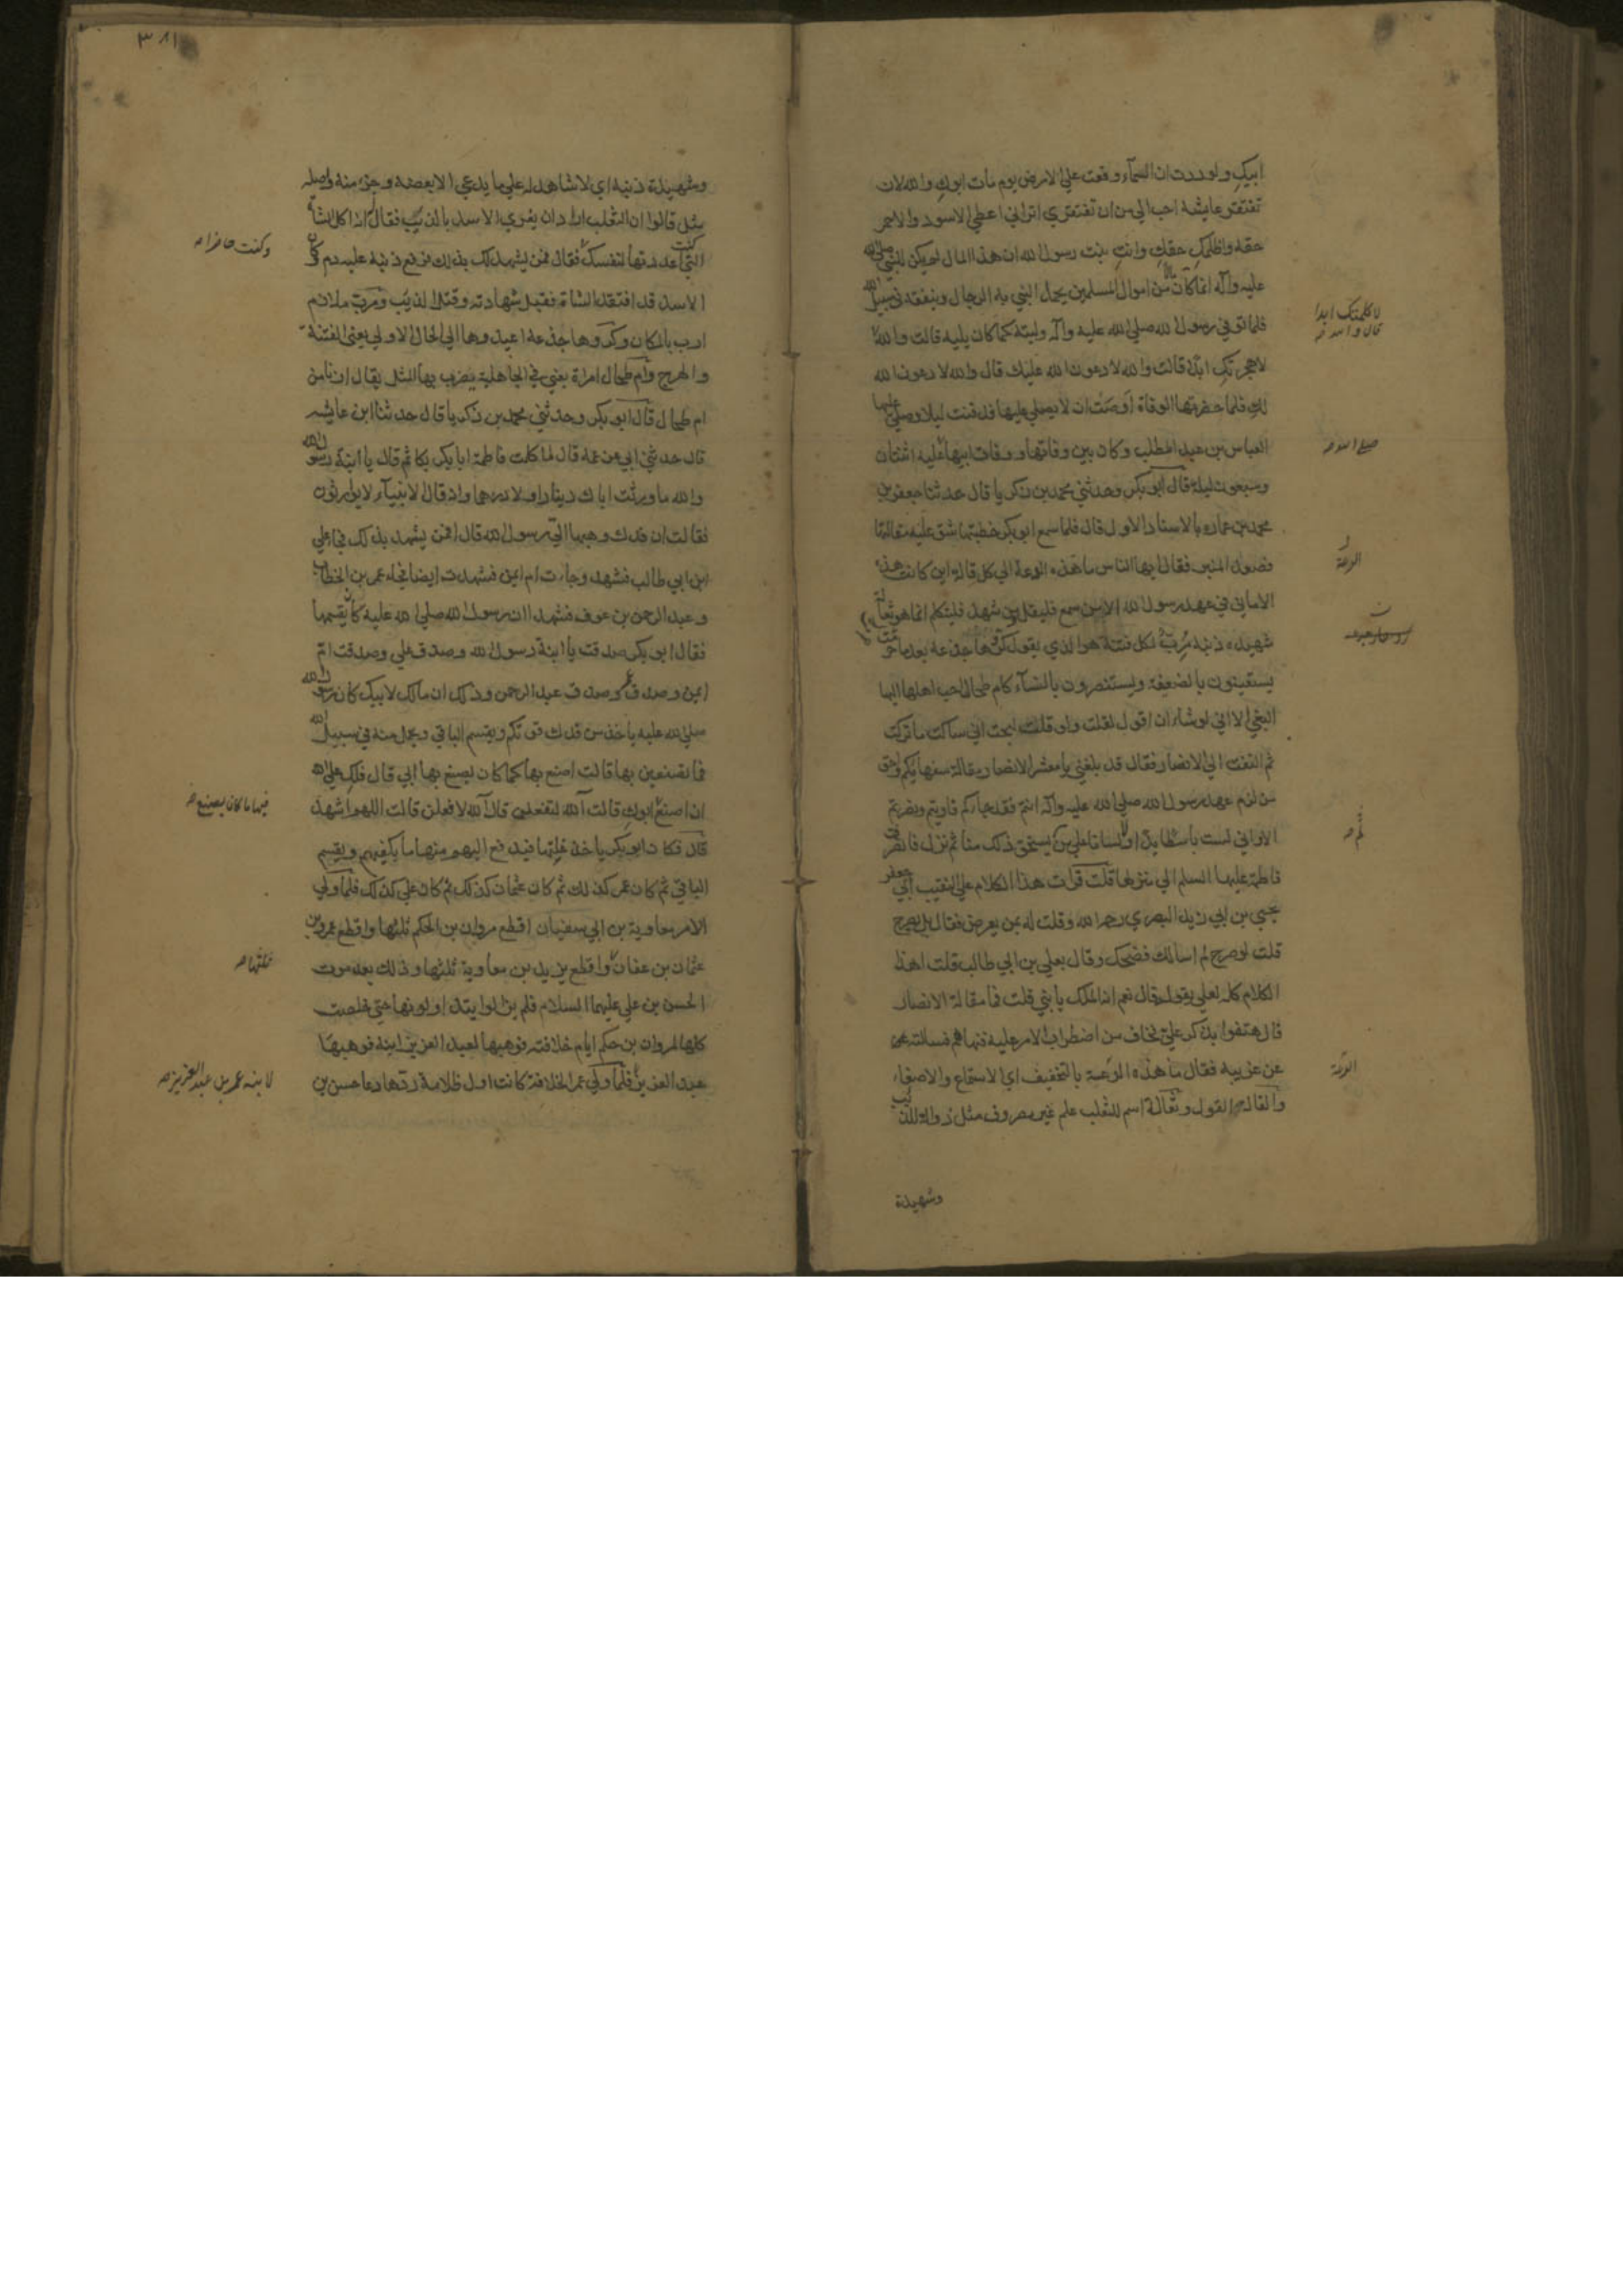 ابيك ولوددت ان السمآء وقعت علي الارض يوم مات ابوك والله لان
تفتقر عايشة احب الي من ان تفتقري اتراني اعطي الاسود والاحمر
حقه واظلمك حقك وانت بنت رسول الله ان هذا المال لم يكن للنبي صلي الله
عليه وآله انما كان من اموال المسلمين يحمل النبي به الرجال وينفقه في سبيل الله
فلما توفي رسول الله صلي الله عليه وآله وليته كما كان يليه قالت والله
لا كلمتك ابدا
قال والله
لاهجرتك ابدا قالت والله لادعون الله عليك قال والله لادعون الله
لك فلما حضرتها الوفاة اوصت ان لا يصلي عليها فدفنت ليلا وصلي عليها
العباس بن عبد المطلب وكان بين وفاتها ووفات ابيها عليه اثنتان
صلي الله
وسبعون ليلة قال ابو بكر وحدثني محمد بن زكريا قال حدثنا جعفر بن
محمد بن عماره بالاسناد الاول قال فلما سمع ابو بكر خطبتها شق عليه مقالتها
فصعد المنبر فقال ايها الناس ما هذه الرعة الي كل قالة اين كانت هذه
الرعة
الاماني في عهد رسول الله الا من سمع فليقل ومن شهد فليتكلم انما هو ثعالة
شهيده ذنبه مرب لكل فتنة هو الذي يقول كروها جذعة بعد ما هرمت
يستعينون بالضعيفة ويستنصرون بالنسآء كام طحال احب اهلها اليها
البغي الا اني لو شاء ان اقول لقلت ولو قلت لبحت اني ساكت ما تركت
ثم التفت الي الانصار فقال قد بلغني يا معشر الانصار مقالة سفهايكم واحق
من لزم عهد رسول الله صلي الله عليه وآله انتم فقد جاءكم فاويتم ونصرتم
الا واني لست باسطا يدا ولا لسانا علي من يستحق ذلك منا ثم نزل فانصرفت
لم
فاطمة عليها السلم الي منزلها قلت قرات هذا الكلام علي النقيب ابي جعفر
يحيي بن ابي زيد البصري رحمه الله وقلت له بمن يعرض فقال بل يصرح
قلت لو صرح لم اسالك فضحك وقال بعلي بن ابي طالب قلت اهذا
الكلام كله لعلي يقوله قال نعم انه الملك يا بني قلت فما مقالة الانصار
قال هتفوا بذكر علي فخاف من اضطراب الامر عليه فنهاهم فسالته
عن غريبه فقال ما هذه الرعة بالتخفيف اي الاستماع والاصغاء
الرعة
والقالة القول وثعالة اسم للثعلب علم غير مصروف مثل ذوالة للذيب
وشهيدة
٣٨١
وشهيدة ذنبه اي لا شاهد له علي ما يدعي الا بعضه وجزء منه واصله
مثل قالوا ان الثعلب اراد ان يغري الاسد بالذيب فقال انه اكل الشاة
التي كنت اعددتها لنفسك فقال فمن يشهد لك بذلك فرفع ذنبه عليه دم وكان
وكنت حاضرا
الاسد قد افتقد الشاة فقبل شهادته وقتل الذيب ومرب ملازم
ارب بالمكان وكروها جذعة اعيدوها الي الحال الاولي يعني الفتنة
والهرج وام طحال امراة بغي في الجاهلية يضرب بها المثل يقال ازنا من
ام طحال قال ابو بكر وحدثني محمد بن زكريا قال حدثنا ابن عايشه
قال حدثني ابي عن عمه قال لما كلمت فاطمة ابا بكر بكا ثم قال يا ابنة رسول الله
والله ما ورث اباك دينارا ولا درهما وانه قال الانبيآء لا يورثون
فقالت ان فدك وهبها الي رسول الله قال فمن يشهد بذلك فجا علي
ابن ابي طالب فشهد وجاءت ام ايمن فشهدت ايضا فجاء عمر بن الخطاب
وعبد الرحمن بن عوف فشهد ان رسول الله صلي الله عليه كان يقسمها
فقال ابو بكر صدقت يا ابنة رسول الله وصدق علي وصدقت ام
ايمن وصدق عمر وصدق عبد الرحمن وذلك ان مالك لابيك كان رسول الله
صلي الله عليه ياخذ من فدك قوتكم ويقسم الباقي ويحمل منه في سبيل الله
فما تصنعين بها قالت اصنع بها كما كان يصنع بها ابي قال فلك علي الله
ان اصنع ابوك قالت آلله لتفعلن قال آلله لافعلن قالت اللهم اشهد
فيها ما كان يصنع
قال فكان ابو بكر ياخذ غلتها فيدفع اليهم منها ما يكفيهم ويقسم
الباقي ثم كان عمر كذلك ثم كان عثمان كذلك ثم كان علي كذلك فلما ولي
الامر معاوية بن ابي سفيان اقطع مروان بن الحكم ثلثها واقطع عمرو بن
عثمان بن عفان واقطع يزيد بن معاوية ثلثها وذلك بعد موت
ثلثها
الحسن بن علي عليهما السلام فلم يزالوا يتداولونها حتي خلصت
كلها لمروان بن حكم ايام خلافته فوهبها لعبد العزيز ابنه فوهبها
عبد العزيز فلما ولي عمر الخلافة كانت اول ظلامة ردها دعا حسن بن
لابنه عمر بن عبد العزيز